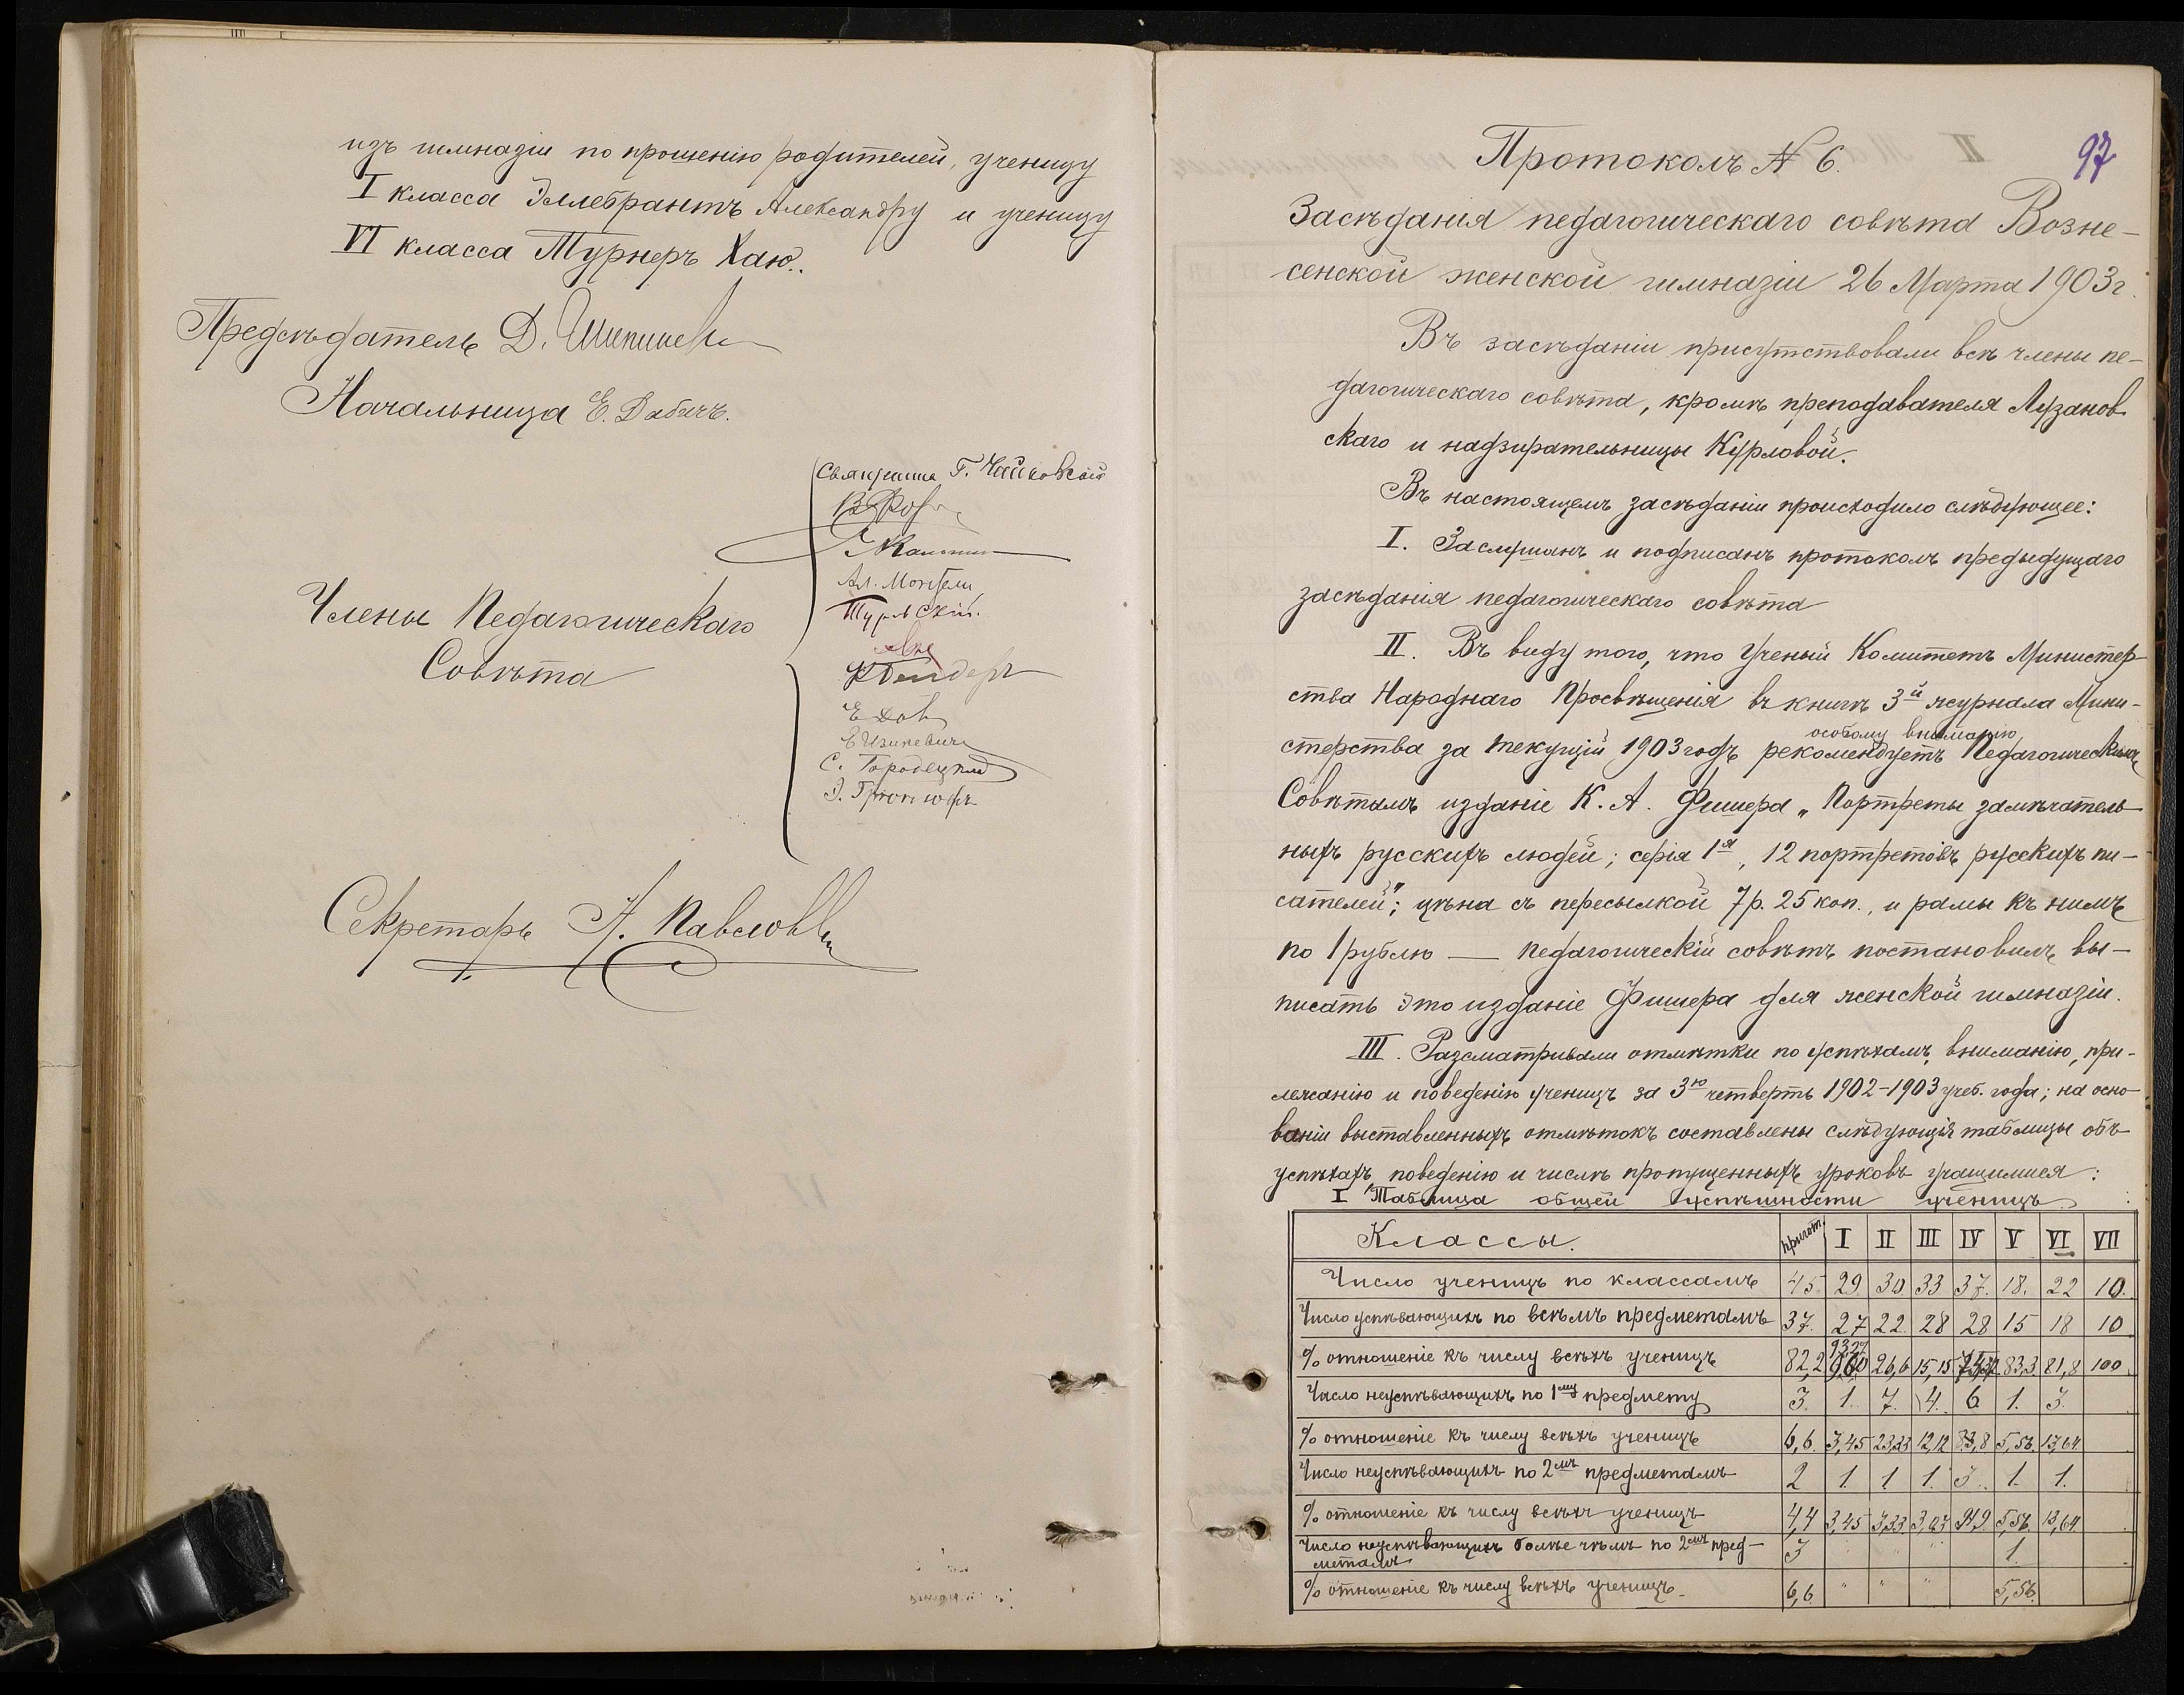 изъ гимназіи по прошенію родителей, ученицу
I класса Эллебрантъ Александру и ученицу
VI класса Турнеръ Хаю..
Предсѣдатель Д.
Начальница Е. Дабичъ.
Священникъ Г. Чайковскій
Ал.
Члены Педагогическаго
Совѣта
К Бендеръ
Е
С. Городецкая
Э.
Секретарь А.
97
Протоколъ № 6.
Засѣданія педагогическаго совѣта Возне-
сенской женской гимназіи 26 Марта 1903 г.
Въ засѣданіи присутствовали всѣ члены пе-
дагогическаго совѣта, кромѣ преподавателя Лузанов-
скаго и надзирательницы Курловой.
Въ настоящемъ засѣданіи происходило слѣдующее:
I. Заслушанъ и подписанъ протоколъ предыдущаго
засѣданія педагогическаго совѣта
II. Въ виду того, что Ученый Комитетъ Министер-
ства Народнаго Просвѣщенія въ книгѣ 3й журнала Мини-
особому вниманію
стерства за текущій 1903 годъ рекомендуетъ Педагогическимъ
Совѣтамъ изданіе К. А. Фишера „Портреты замѣчатель-
ныхъ русскихъ людей; серія 1я, 12 портретовъ русскихъ пи-
сателей"; цѣна съ пересылкой 7 р. 25 коп., и рамы къ нимъ
по 1 рублю — педагогическій совѣтъ постановилъ вы-
писать это изданіе Фишера для женской гимназіи.
III. Разсматривали отмѣтки по успѣхамъ, вниманію, при-
лежанію и поведенію ученицъ за 3ю четверть 1902-1903 учеб. года; на осно-
ваніи выставленныхъ отмѣтокъ составлены слѣдующія таблицы объ
успѣхахъ, поведенію и числѣ пропущенныхъ уроковъ учащимися:
I Таблица общей успѣшности ученицъ.
Классы. пригот. I II III IV V VI VII
Число ученицъ по классамъ 45 29 30 33 37. 18. 22 10.
Число успѣвающихъ по всѣмъ предметамъ 37. 27 22. 28 28 15 18 10
% отношеніе къ числу всѣхъ ученицъ 82,2 26,6 15,15 83,3 81,8 100
Число неуспѣвающихъ по 1му предмету 3. 1. 7. 4. 6 1. 3.
% отношеніе къ числу всѣхъ ученицъ 6,6. 3,45 23,33 12,12 5,56. 13,64
Число неуспѣвающихъ по 2мъ предметамъ 2 1. 1 1. 3. 1. 1.
% отношеніе къ числу всѣхъ ученицъ 4,4 3,45 3,33 3,03 5,56. 13,64
Число неуспѣвающихъ болѣе чѣмъ по 2мъ пред-
метамъ 3 " " " 1.
% отношеніе къ числу всѣхъ ученицъ. 6,6 " " " 5,56.